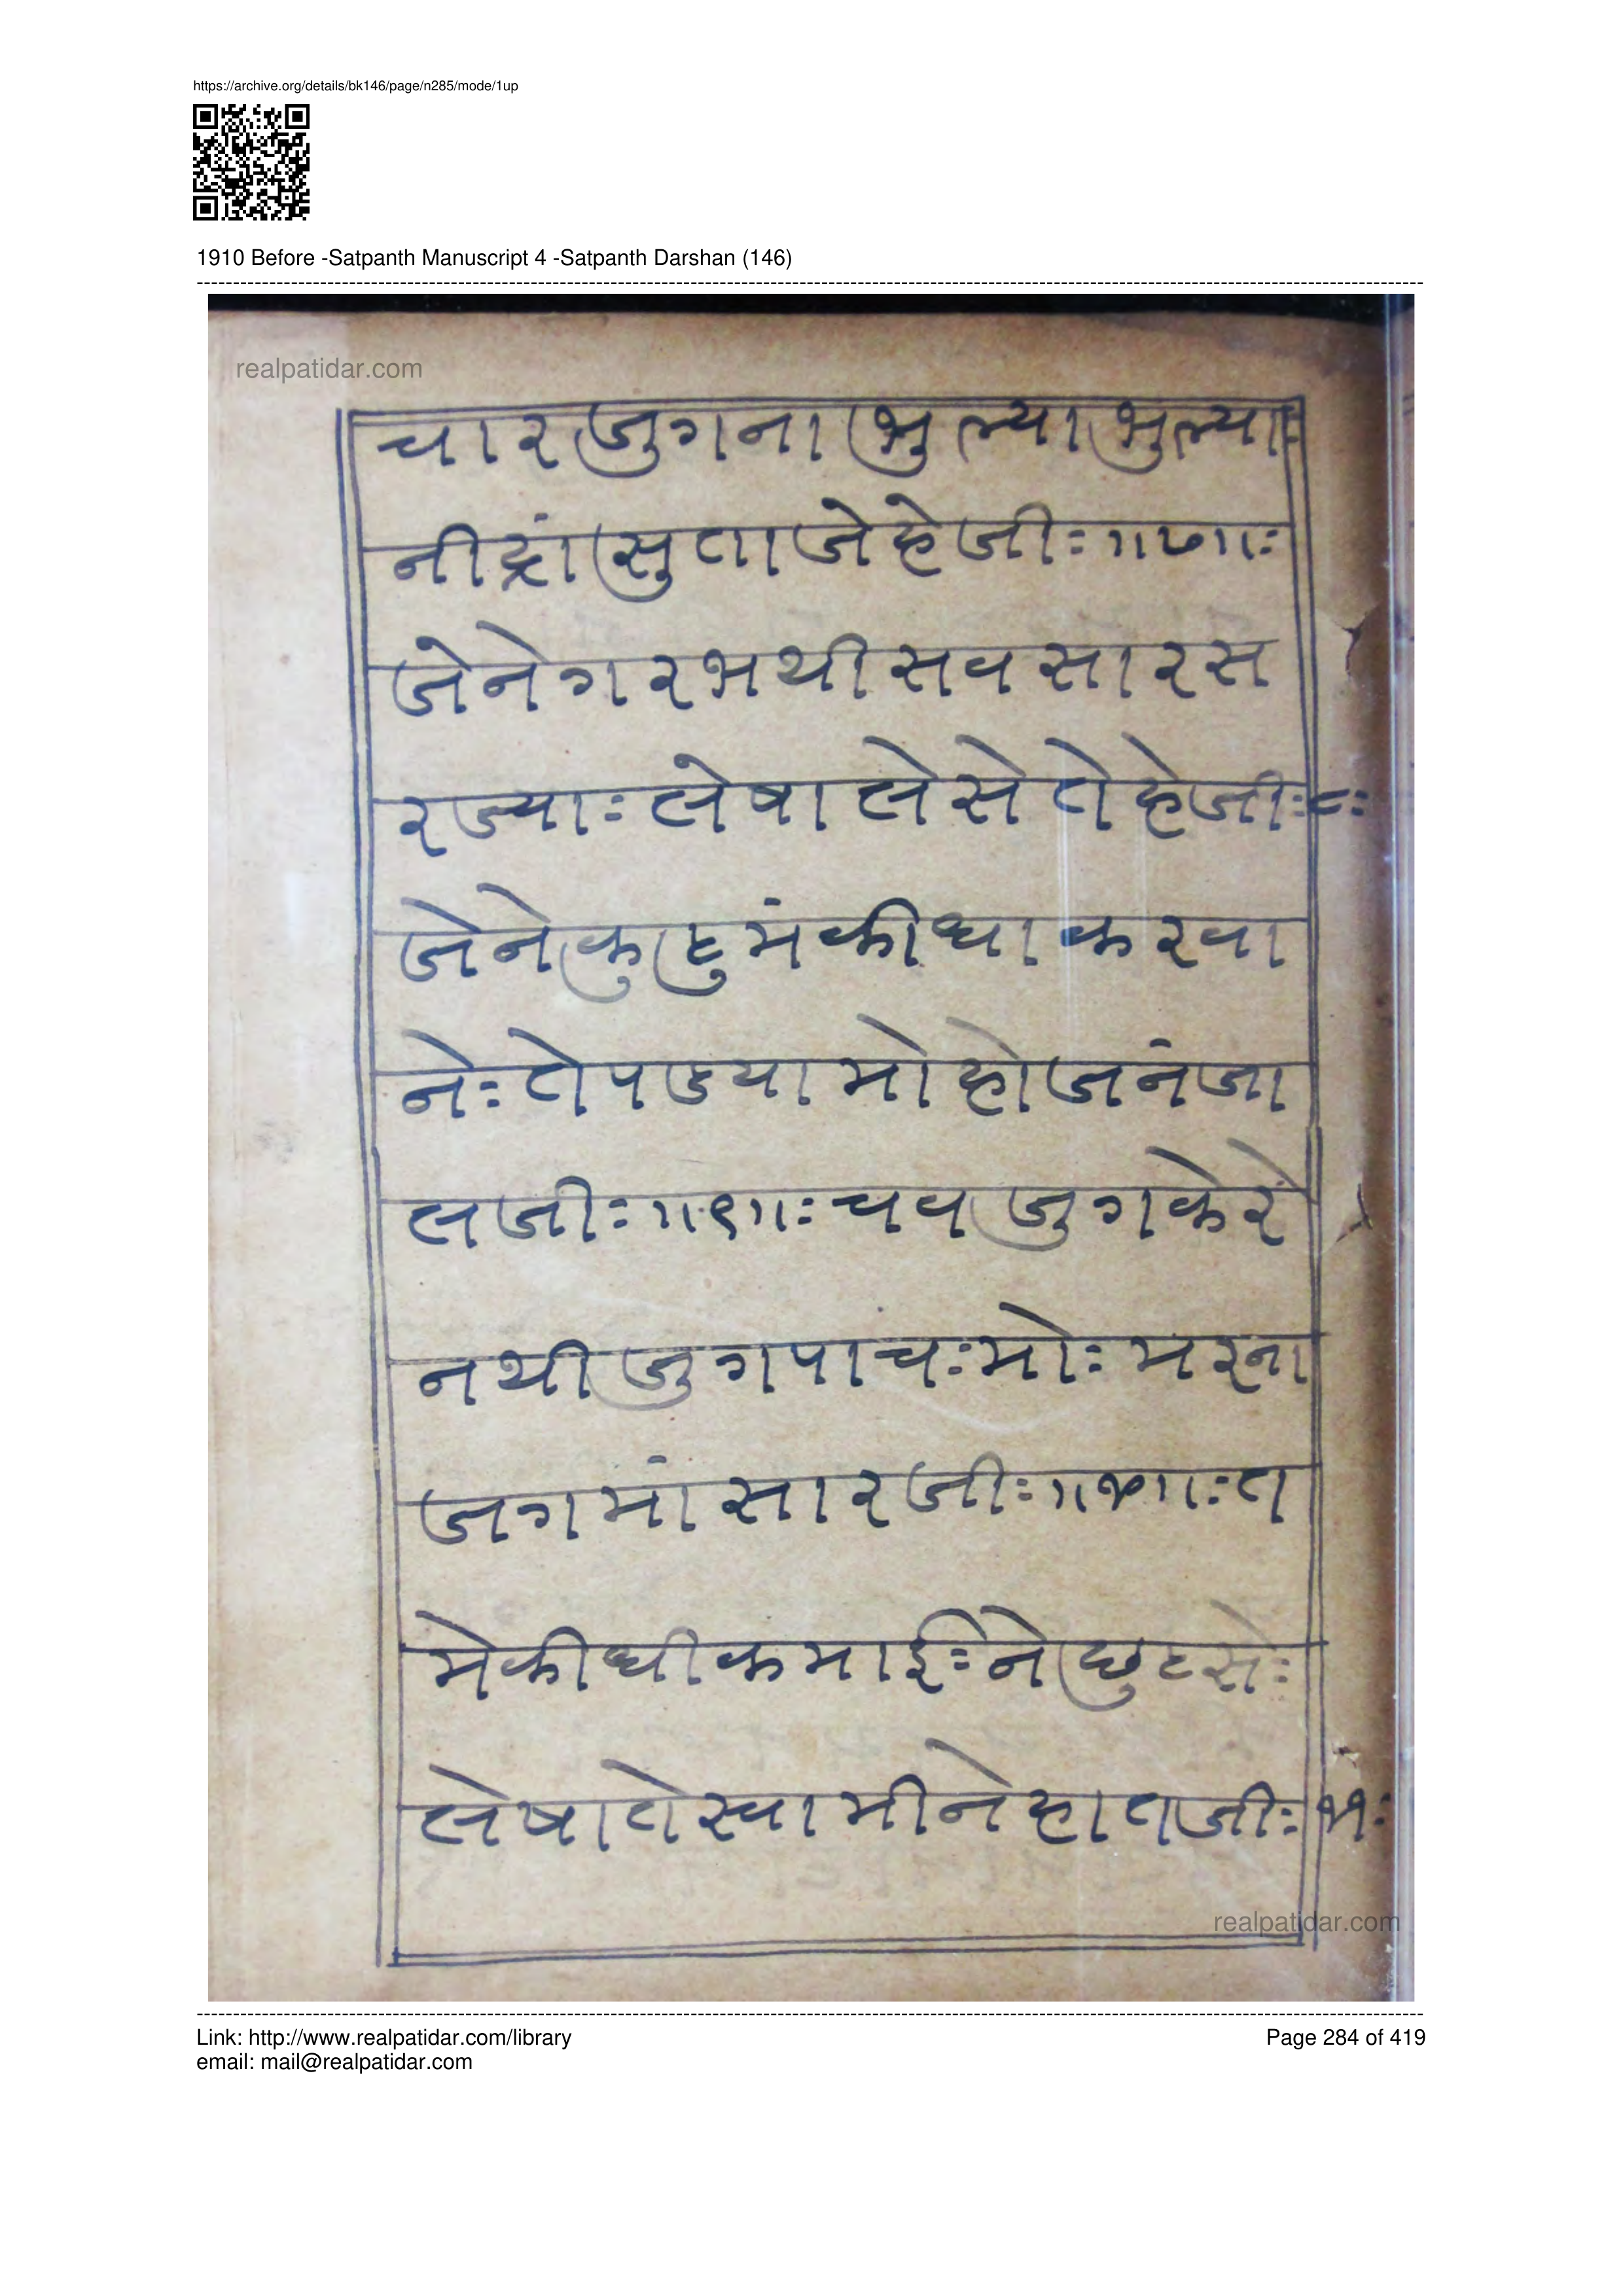 https://archive.org/details/bk146/page/n285/mode/1up
1910 Before -Satpanth Manuscript 4 -Satpanth Darshan (146)
realpatidar.com
चारजुगनाभुल्याभुल्याः
नीद्रांसुताजेहेजीः॥७॥ः
जेनेगरभथीसवसारस
रज्याः लेषालेसेतोहेजीः८ः
जेनेकुहुमंकीधाकरवा
नेः तोपडयामोहोजनंजा
लजीः॥९॥ः चवजुगकेरे
नथीजुगपाचः मोः मरना
जगमांसारजीः॥१०॥ः त
मेकीधीकमाईः नेछुटसेः
लेषातोस्वामीनेहातजीः ११ः
realpatidar.com
Link: http://www.realpatidar.com/library
Page 284 of 419
email: mail@realpatidar.com